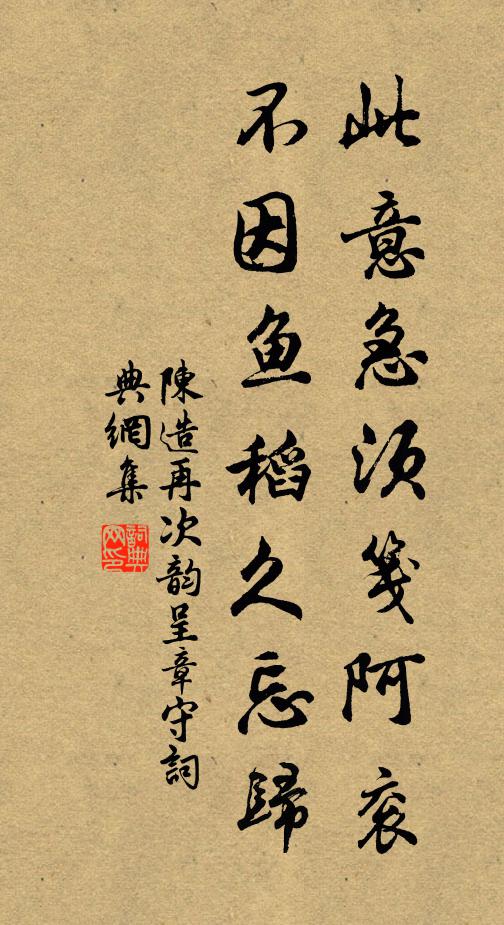 此意急须笺阿衮
不因鱼稻久忘歸
陳造再次韵呈章守詞
典網集
詞典網印